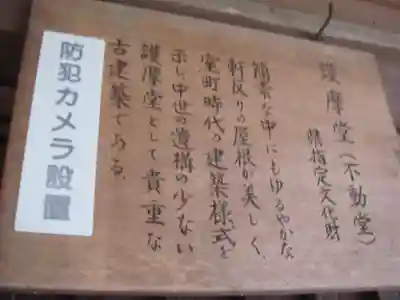 護摩堂(不動堂)
県指定文化財
簡素な中にもゆるやかな
軒反りの屋根が美しく、
室町時代の建築様式を
示し中世の遺構の少ない
護摩堂として貴重な
古建築である。
防犯カメラ設置